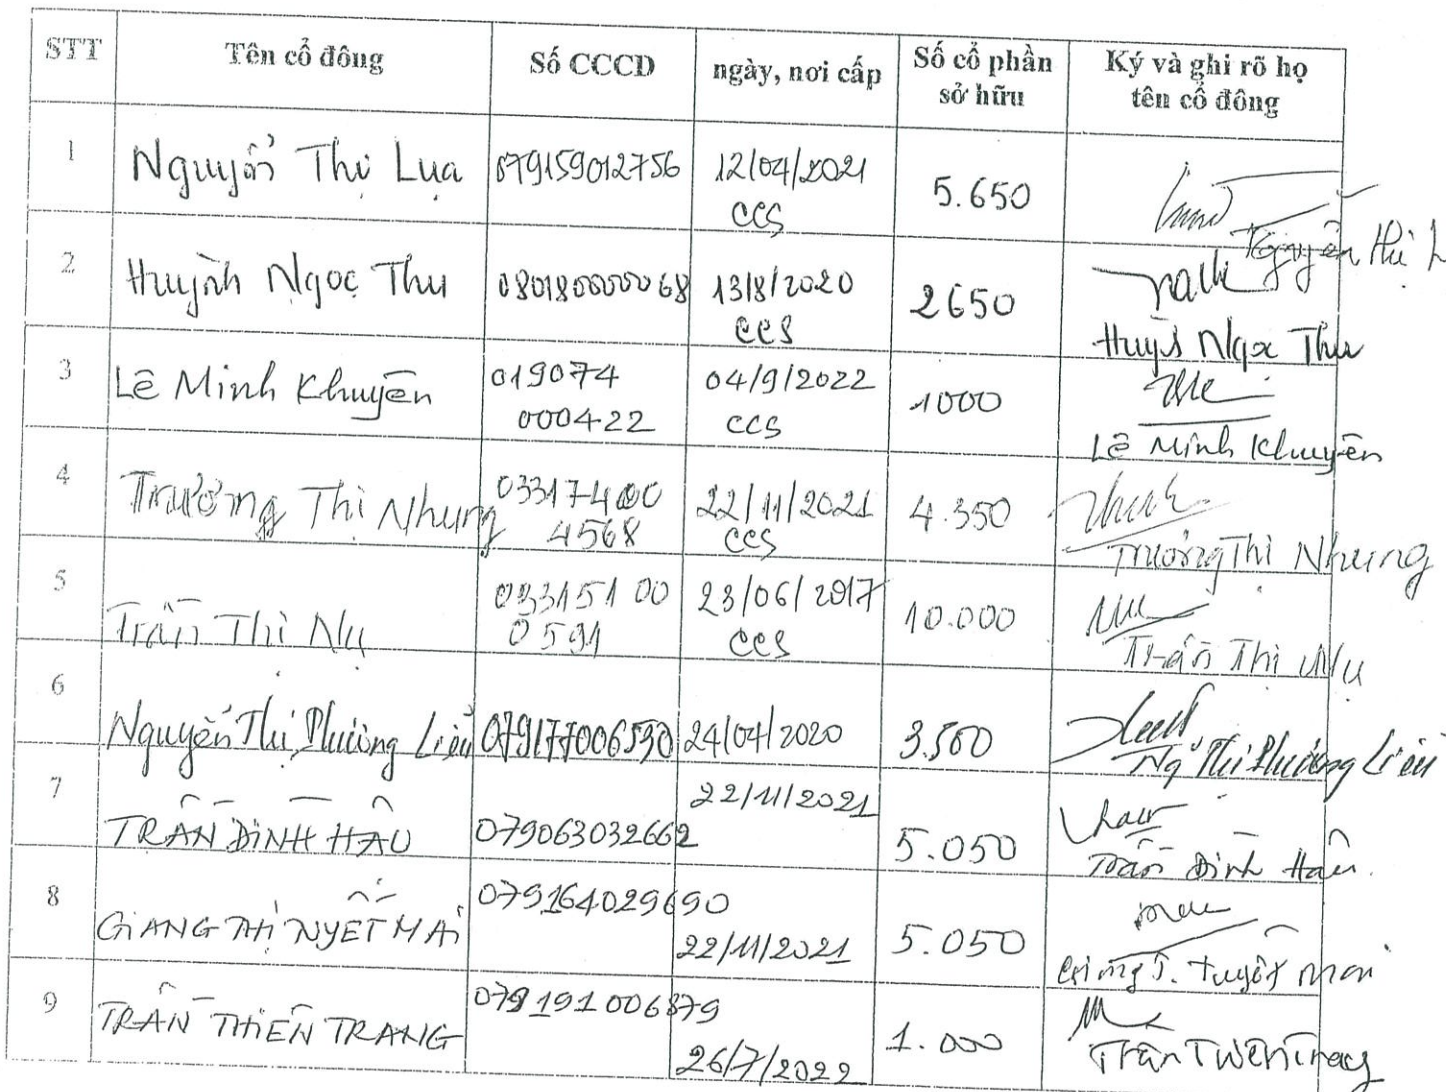 STT Tên cổ đông Số CCCD ngày, nơi cấp Số cổ phần sở hữu Ký và ghi rõ họ tên cổ đông
1 Nguyễn Thị Lụa 079159012756 12/04/2021 5.650
CCS
Nguyễn Thị L
2 Huỳnh Ngọc Thu 080180000068 13/8/2020 2650
CCS
Huỳnh Ngọc Thu
3 Lê Minh Khuyên 019074 04/9/2022 1000
000422 CCS
Lê Minh Khuyên
4 Trương Thị Nhung 03317400 22/11/2021 4.350
4568 CCS
Trương Thị Nhung
5 Trần Thị Nụ 03315100 23/06/2017 10.000
0591 CCS
Trần Thị Nụ
6 Nguyễn Thị Phương Liễu 079177006590 24/04/2020 3.500
Ng Thị Phương Liễu
7 TRẦN ĐÌNH HẬU 079063032662 22/11/2021 5.050
Trần Đình Hậu
8 GIANG THỊ NYẾT MAI 079164029690
22/11/2021 5.050
Giang T. Tuyết Mai
9 TRẦN THIÊN TRANG 079191006879
26/7/2022 1.000
Trần Thiên Trang